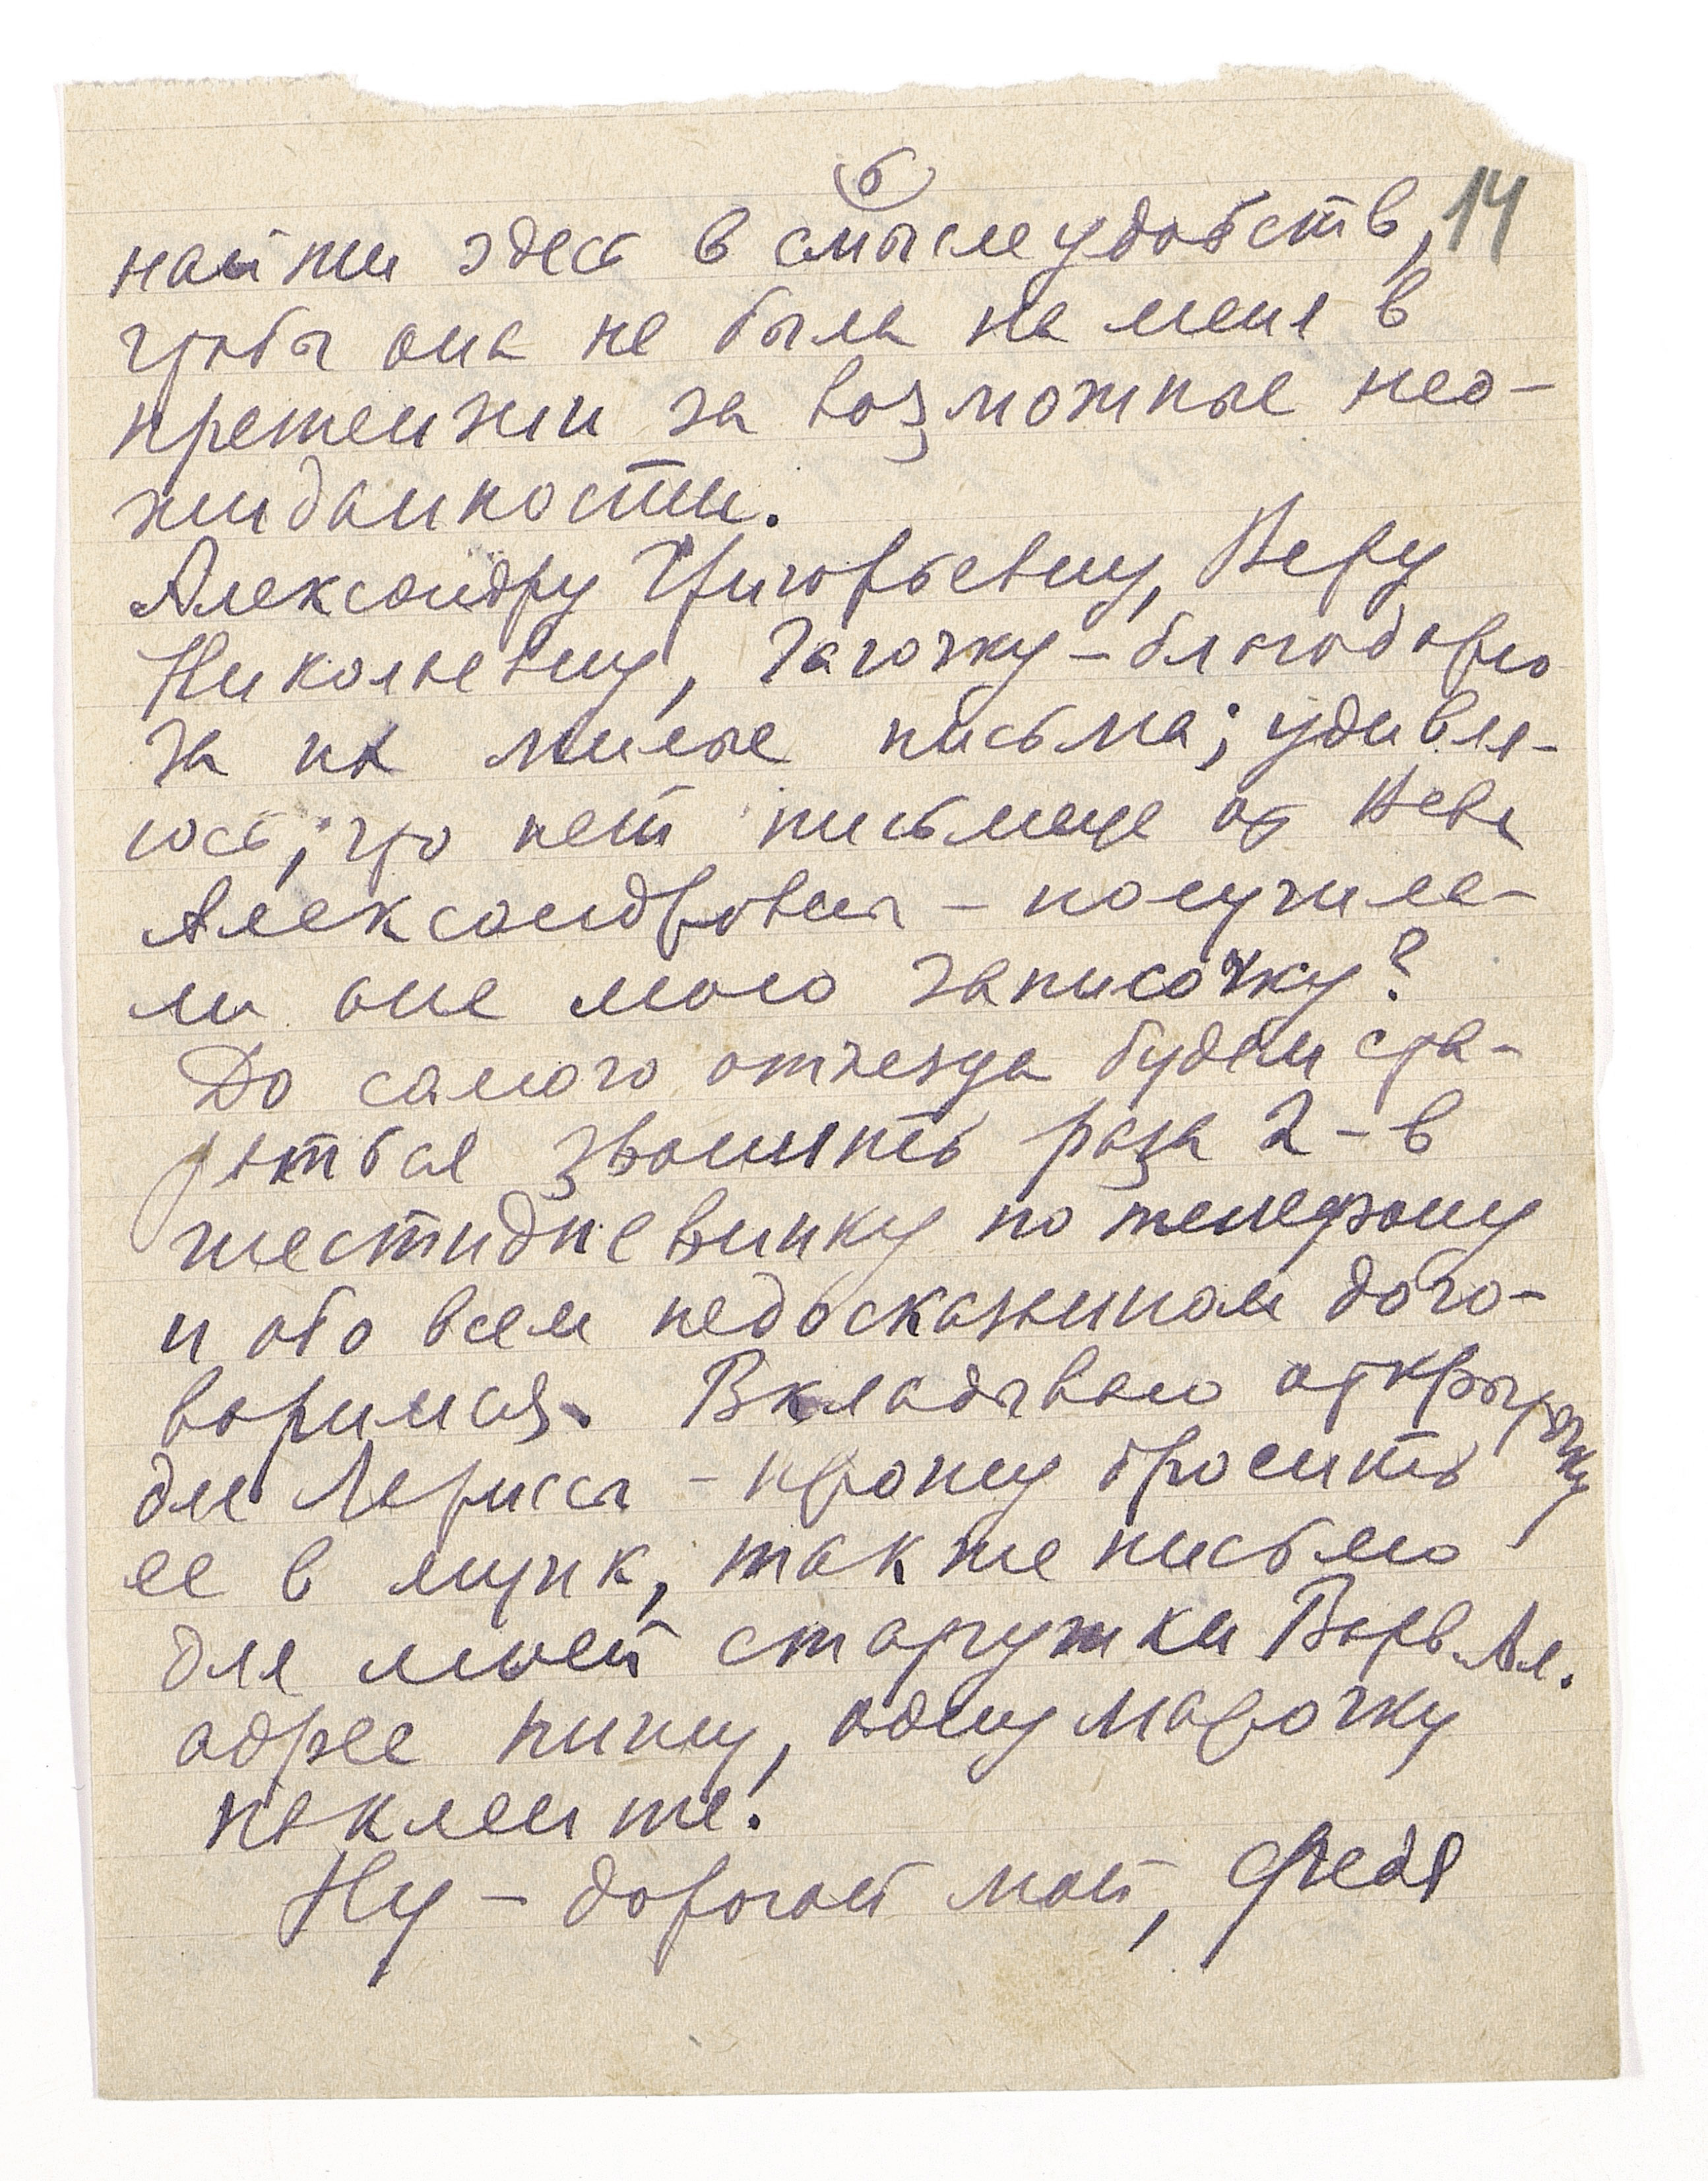 6
14
найти здесь в смысле удобств,
чтобы она не была на меня в
претензии за возможные нео-
жиданности.
Александру Григорьевну, Веру
Николаевну, Тагочку – благодарю
за их милые письма; удивля-
юсь, что нет письмеца от
Александровны – получила-
ли она мою записочку?
До самого отъезда будем ста-
раться звонить раза 2 – в
шестидневку по телефону
и обо всем недосказанном дого-
воримся. Вкладываю открыточку
для Ларисы – прошу бросить
ее в ящик, также письмо
для моей старушки Варв. Ал.
адрес пишу, одну марочку
наклеите.
Ну – дорогой мой, Федя